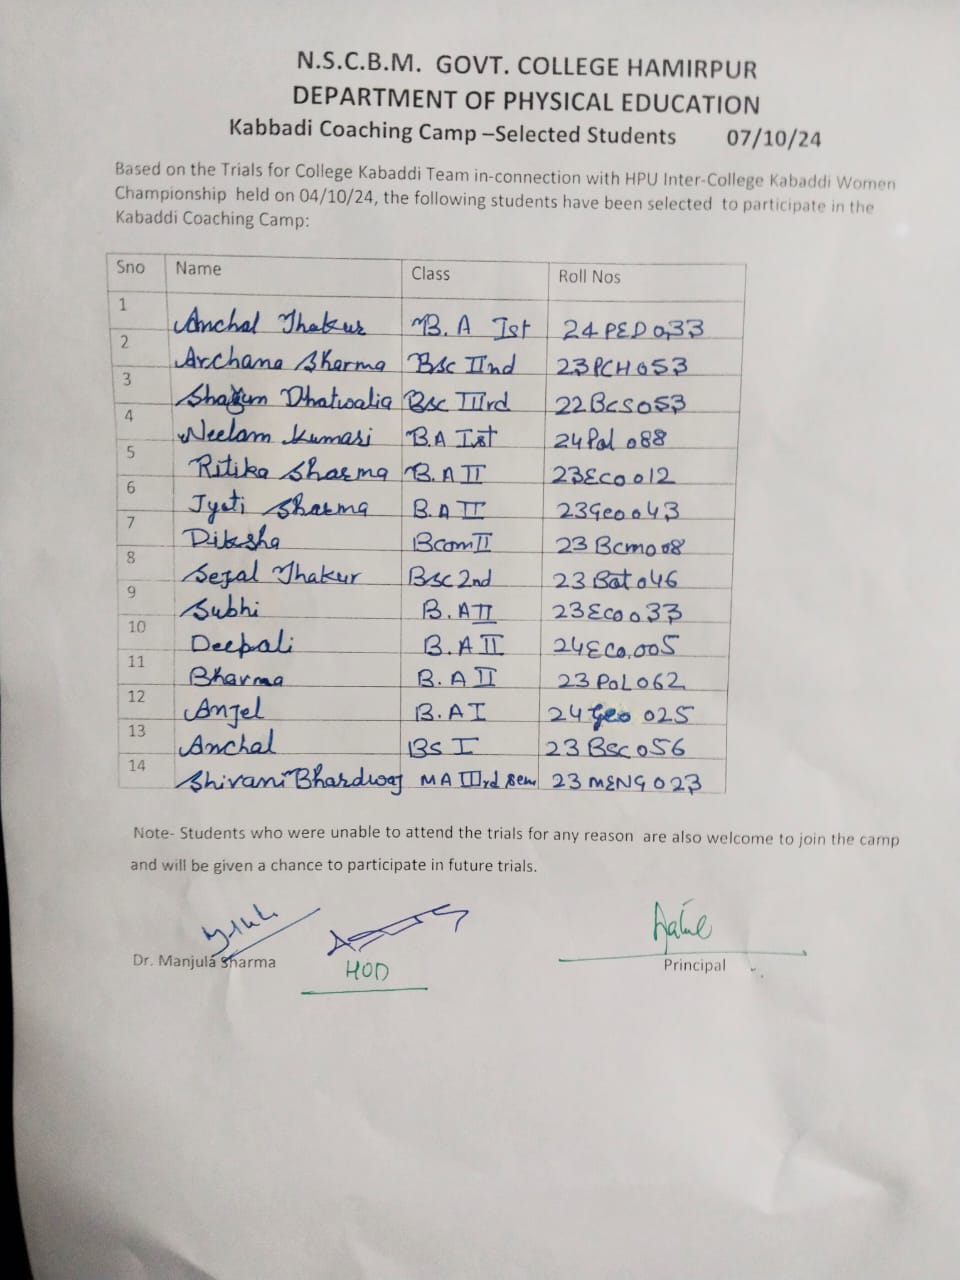 N.S.C.B.M. GOVT. COLLEGE HAMIRPUR
DEPARTMENT OF PHYSICAL EDUCATION
Kabbadi Coaching Camp –Selected Students 07/10/24
Based on the Trials for College Kabaddi Team in-connection with HPU Inter-College Kabaddi Women
Championship held on 04/10/24, the following students have been selected to participate in the
Kabaddi Coaching Camp:
Sno Name Class Roll Nos
1 Anchal Thakur B.A Ist 24PED033
2 Archana Sharma Bsc IInd 23PCH053
3 Shagun Dhatwalia Bsc IIIrd 22BCS053
4 Neelam Kumari B.A Ist 24Pol088
5 Ritika Sharma B.A II 23Eco012
6 Jyoti Sharma B.A II 23Geo043
7 Diksha Bcom II 23Bcmo08
8 Sejal Thakur Bsc 2nd 23Bot046
9 Subhi B.A II 23Eco033
10 Deepali B.A II 24Eco.005
11 Bharma B.A II 23PoL062
12 Anjel B.A I 24Geo025
13 Anchal BS I 23Bsc056
14 Shivani Bhardwaj MA IIIrd sem 23MENG023
Note- Students who were unable to attend the trials for any reason are also welcome to join the camp
and will be given a chance to participate in future trials.
Dr. Manjula Sharma HOD Principal